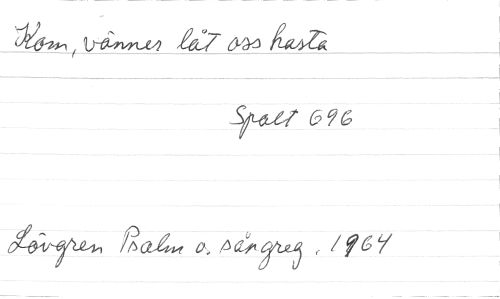 Kom, vänner låt oss hasta
Spalt 696
Lövgren Psalm o. sångreg. 1964